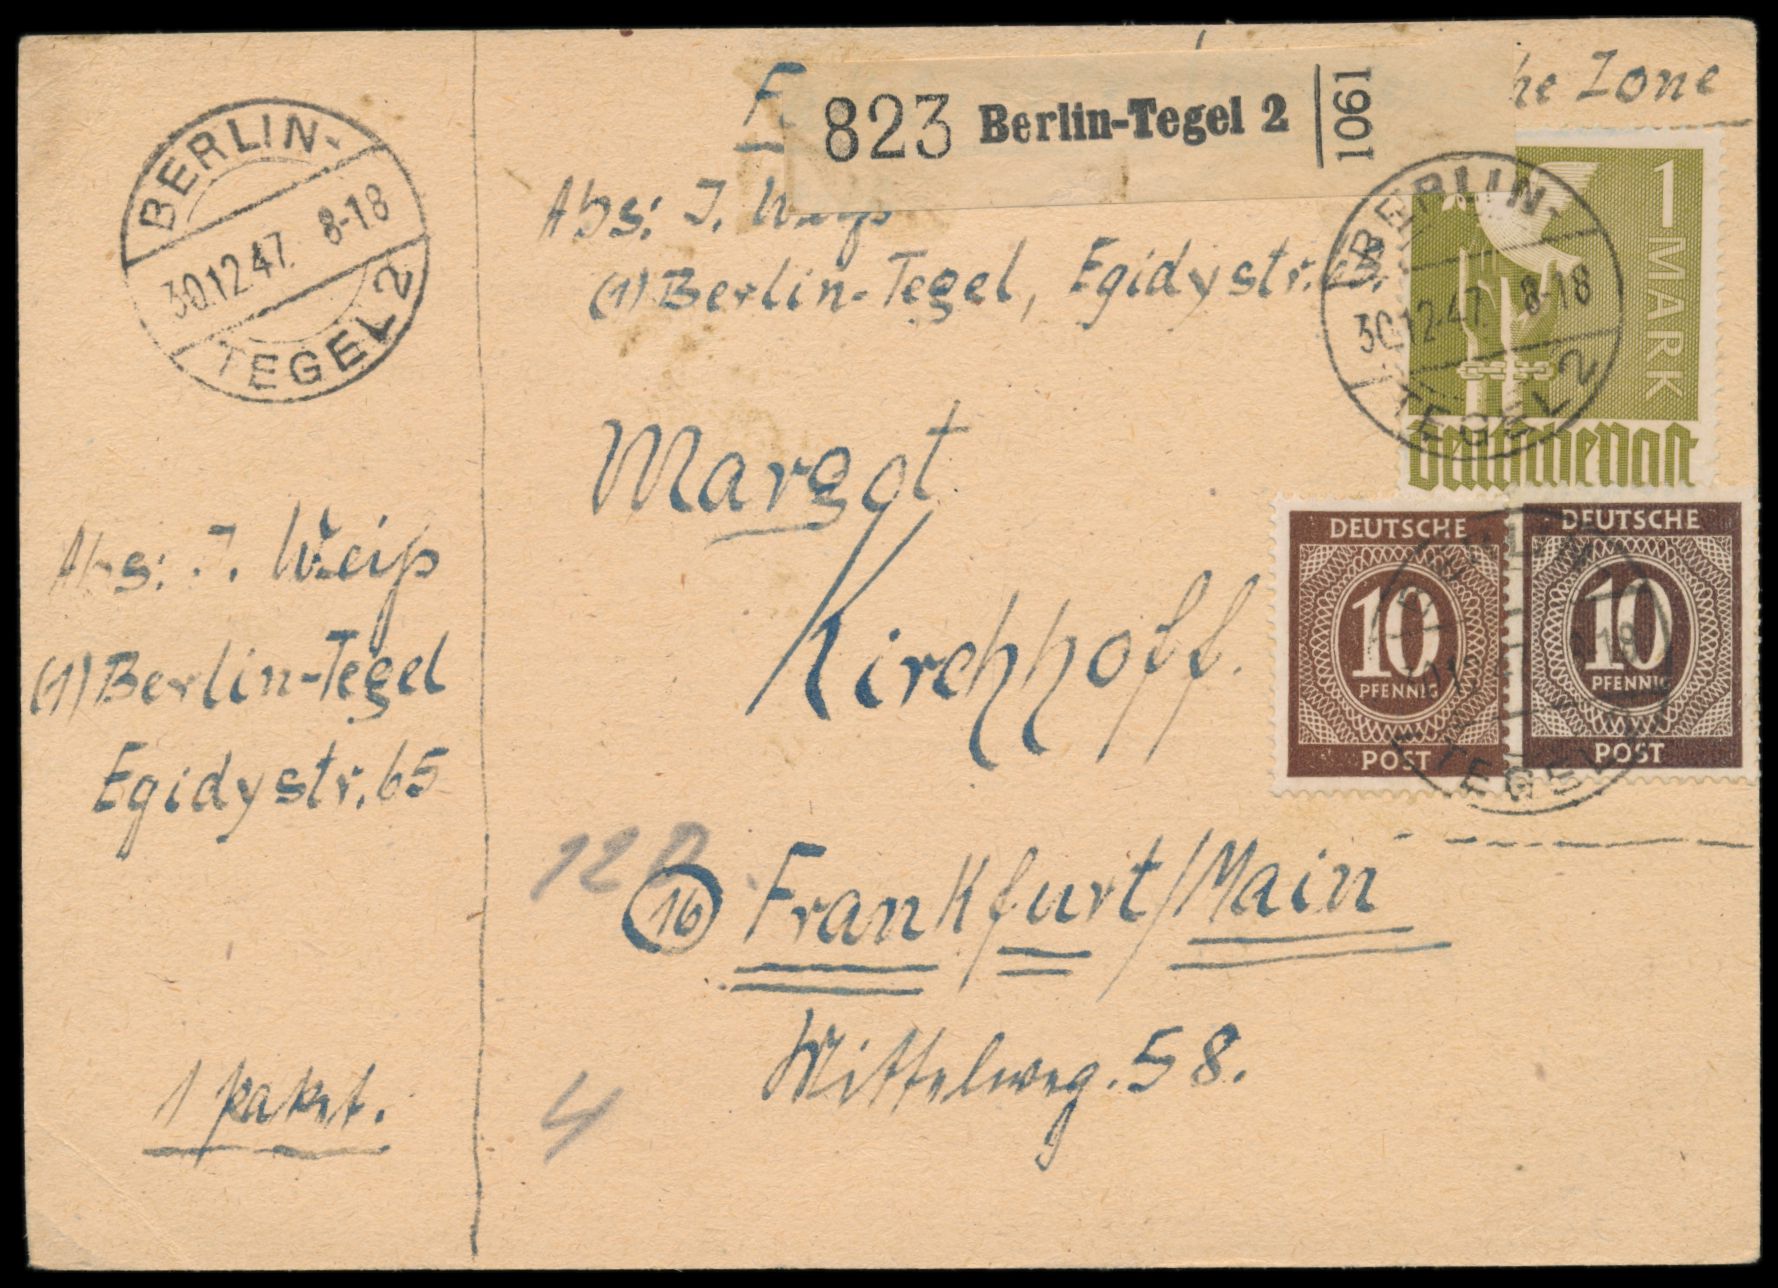 BERLIN-
30.12.47. 8-18
TEGEL 2
823 Berlin-Tegel 2 1061
Zone
Abs: J. Weiß
(1) Berlin-Tegel, Egidystr.
BERLIN-
30.12.47. 8-18
TEGEL 2
1 MARK
Deutsche Post
Margot
Kirchhoff.
DEUTSCHE
10
PFENNIG
POST
DEUTSCHE
10
PFENNIG
POST
TEGEL
Abs: J. Weiß
(1) Berlin-Tegel
Egidystr. 65
12
(16) Frankfurt/Main
Mittelweg. 58.
1 Paket.
4